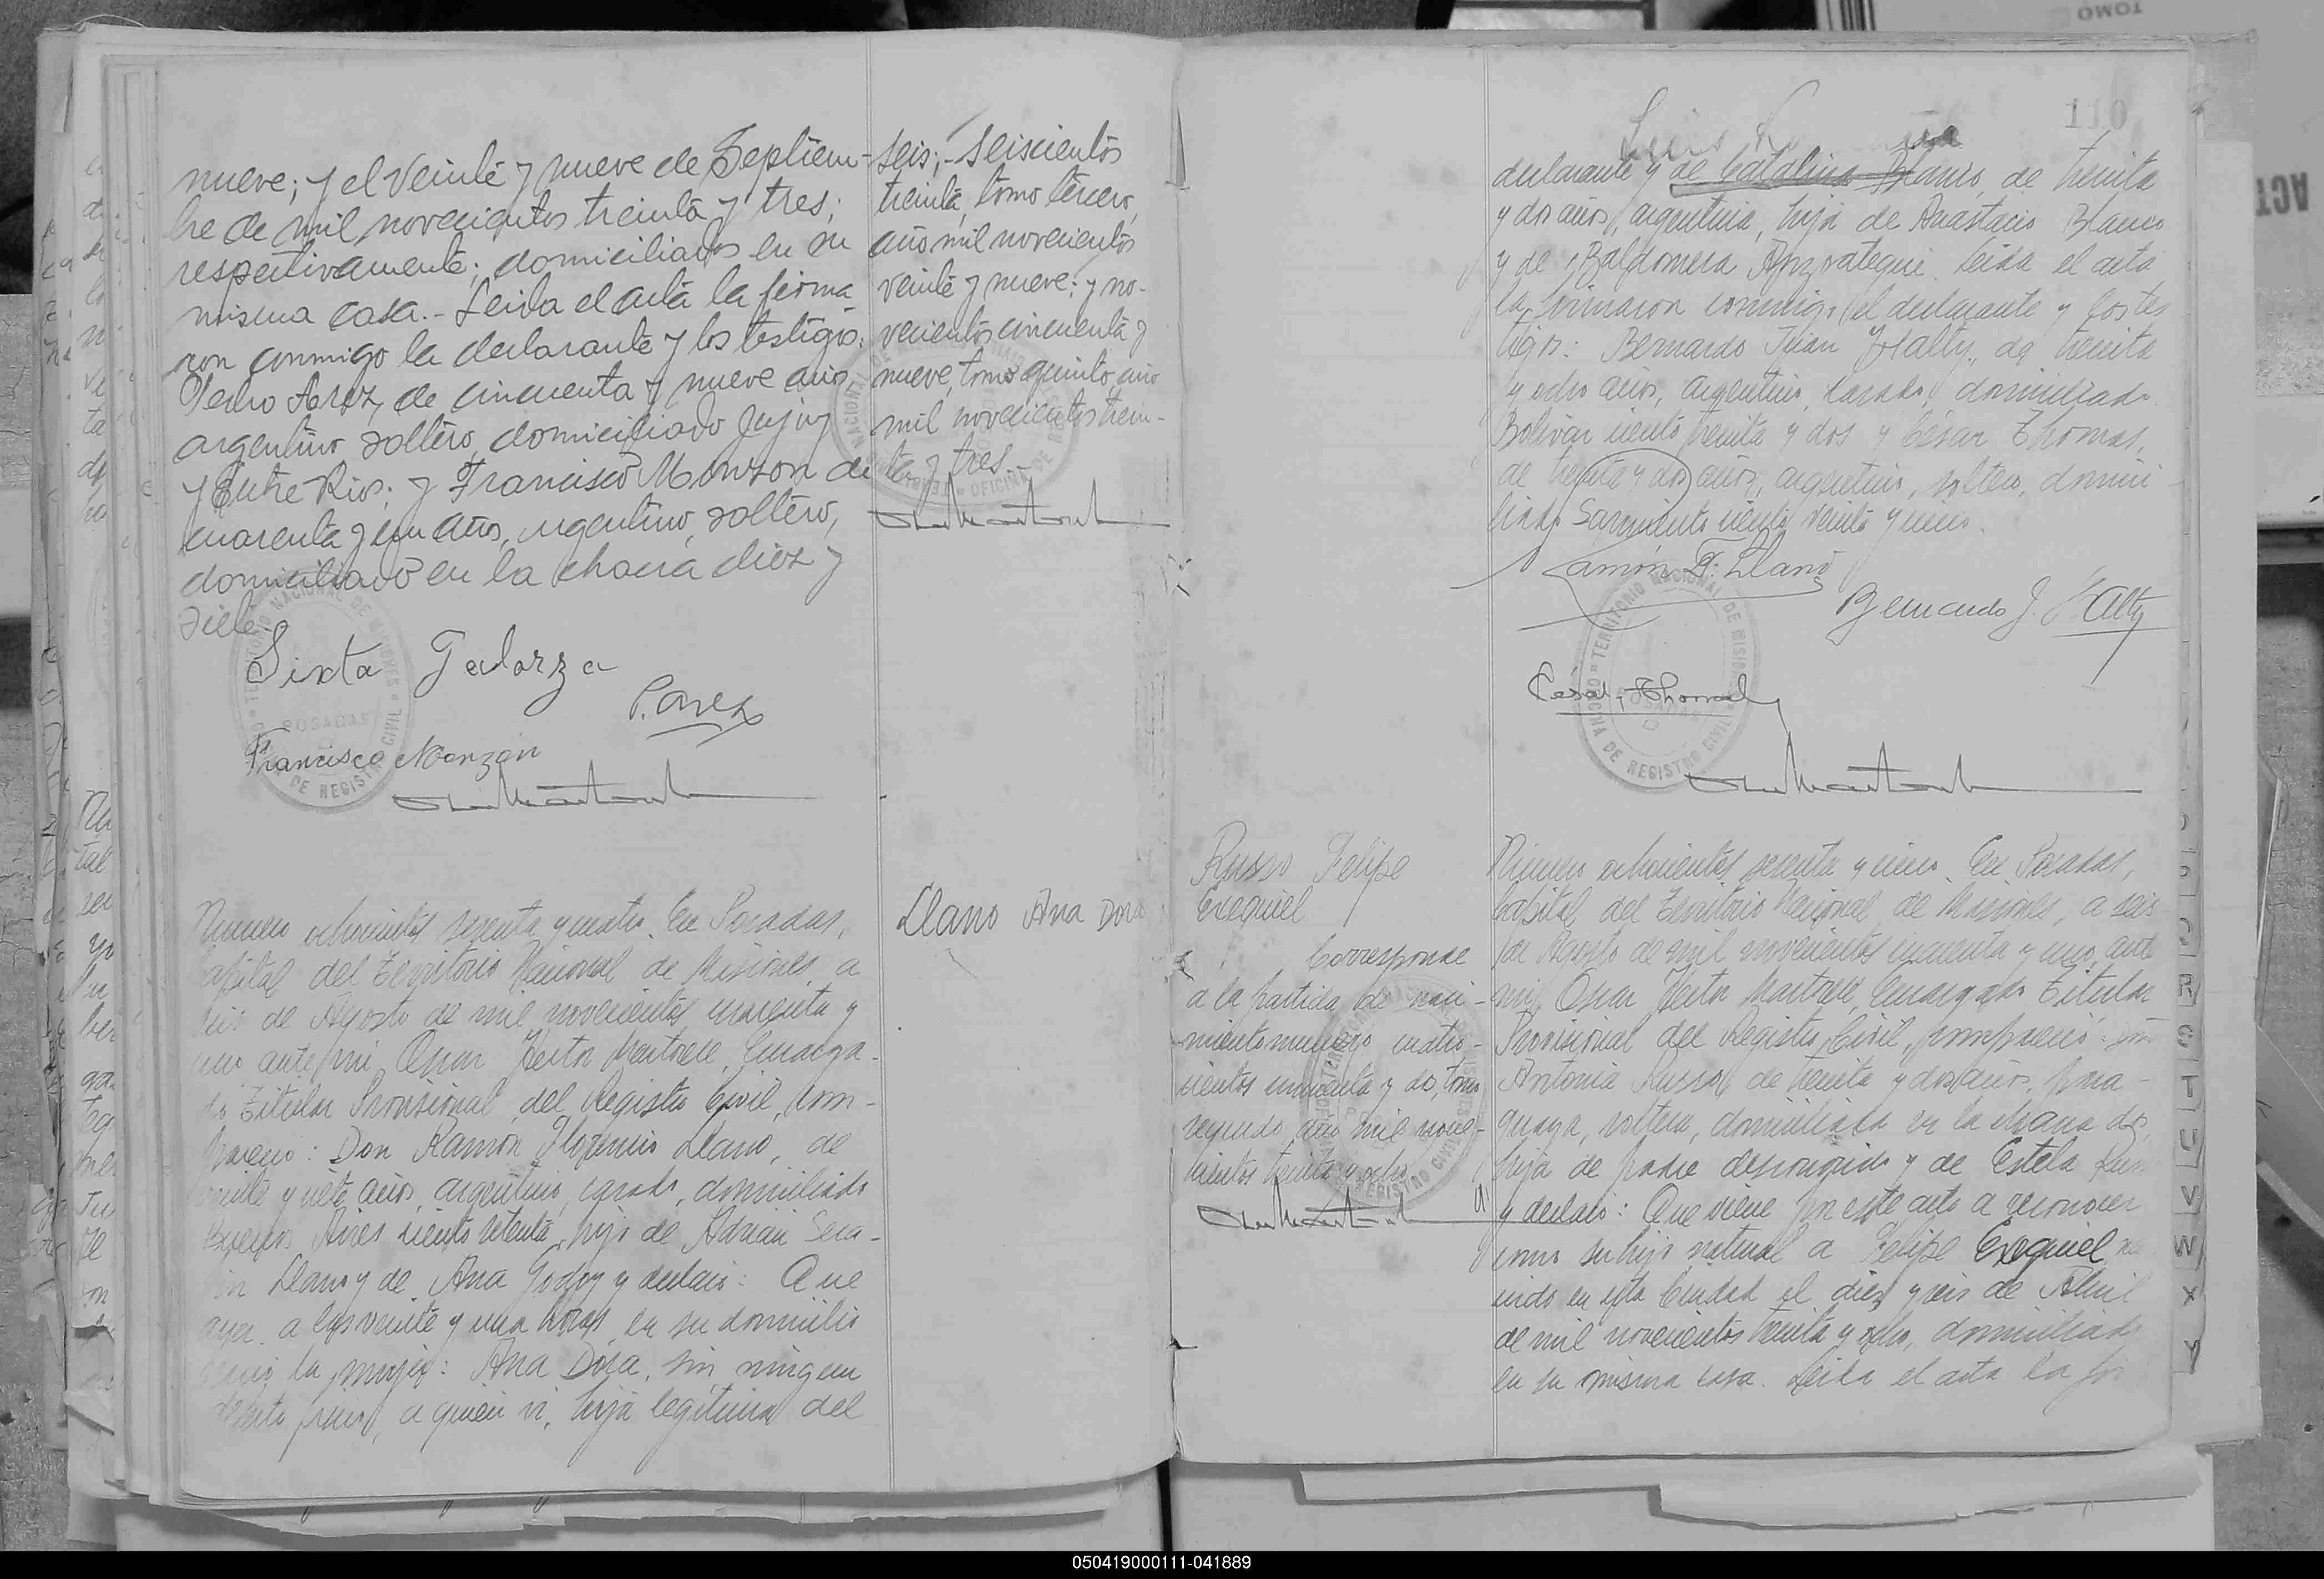 nueve; y el veinte y nueve de Septiem-
bre de mil novecientos treinta y tres;
respectivamente; domiciliados en su
misma casa.- Leida el acta la firma
ron conmigo la declarante y los testigos:
Pedro Arez, de cincuenta y nueve años,
argentino, soltero, domiciliado Jujuy
y Entre Rios; y Francisco Monzon de
cuarenta y un años, argentino, soltero,
domiciliado en la chacra diez y
siete.-
Sixta Galarza
P. Arez
Francisco Monzón
seis;- seiscientos
treinta, tomo tercero,
año mil novecientos
veinte y nueve; y no-
vecientos cincuenta y
nueve, tomo quinto, año
mil novecientos trein-
ta y tres.-
Numero ochocientos sesenta y cuatro. En Posadas,
Capital del Territorio Nacional de Misiones, a
seis de Agosto de mil novecientos cincuenta y
uno, ante mi, Oscar Hector Martorell, Encarga-
do Titular Provisional del Registro Civil, com-
pareció: Don Ramón Florencio Llano, de
veinte y siete años, argentino, casado, domiciliado
Buenos Aires ciento setenta, hijo de Adrian Sera-
fin Llano y de Ana Godoy y declaró: Que
ayer a las veinte y una horas, en su domicilio
nació la mujer: Ana Dora, sin ningun
defecto fisico, a quien vi, hija legitima del
Llano Ana Dora
110
declarante y de Catalina Blanco, de treinta
y dos años, argentina, hija de Anastacio Blanco
y de Baldomera Anzoategui. Leida el acta
la firmaron conmigo el declarante y los tes
tigos: Bernardo Juan Halty, de treinta
y ocho años, argentino, casado, domiciliado
Bolivar ciento treinta y dos y César Thomas,
de treinta y dos años, argentino, soltero, domici-
liado Sarmiento ciento veinte y uno.
Ramón F. Llano
Bernardo J. Halty
César Thomas
TERRITORIO NACIONAL DE MISIONES
OFICINA DE REGISTRO CIVIL
POSADAS
Russo Felipe
Exequiel
Corresponde
a la partida de naci-
miento numero cuatro-
cientos cincuenta y dos, tomo
segundo, año mil nove-
cientos treinta y ocho.
Numero ochocientos sesenta y cinco. En Posadas,
Capital del Territorio Nacional de Misiones, a seis
de Agosto de mil novecientos cincuenta y uno, ante
mi, Oscar Hector Martorell, Encargado Titular
Provisional del Registro Civil, compareció:
Antonia Russo, de treinta y dos años, para-
guaya, soltera, domiciliada en la chacra dos,
hija de padre desconocido y de Estela Russo
y declaró: Que viene por este acto a reconocer
como su hijo natural a Felipe Exequiel na
cido en esta Ciudad el diez y seis de Abril
de mil novecientos treinta y ocho, domiciliado
en su misma casa. Leida el acta la fir
R
S
T
U
V
W
X
Y
TOMO
ACT
050419000111-041889